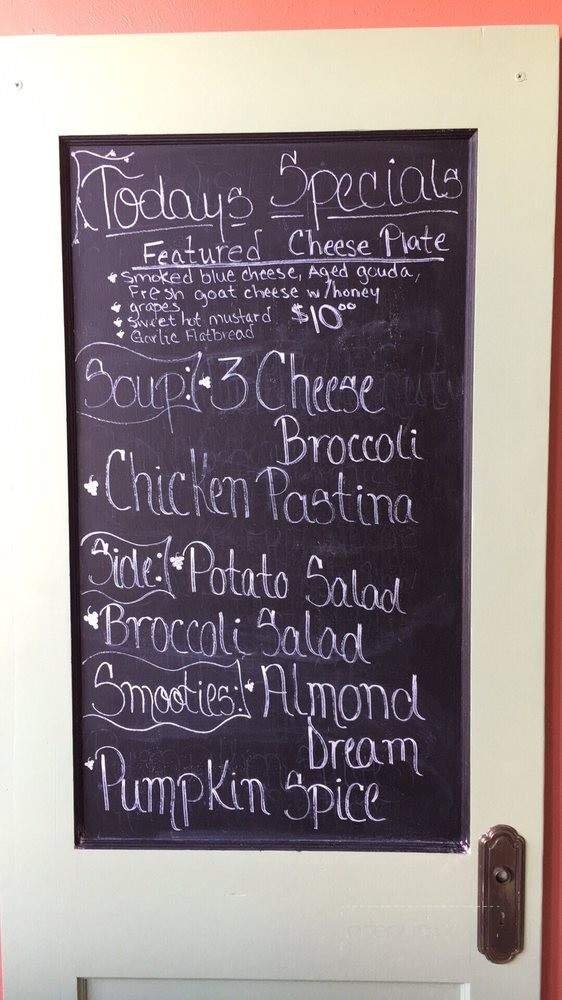 Todays Specials
Featured Cheese Plate
Smoked blue cheese, Aged gouda,
Fresh goat cheese w/honey
grapes
sweet hot mustard $10⁰⁰
Garlic Flatbread
Soup: 3 Cheese
Broccoli
Chicken Pastina
Side: Potato Salad
Broccoli Salad
Smooties: Almond
Dream
Pumpkin Spice